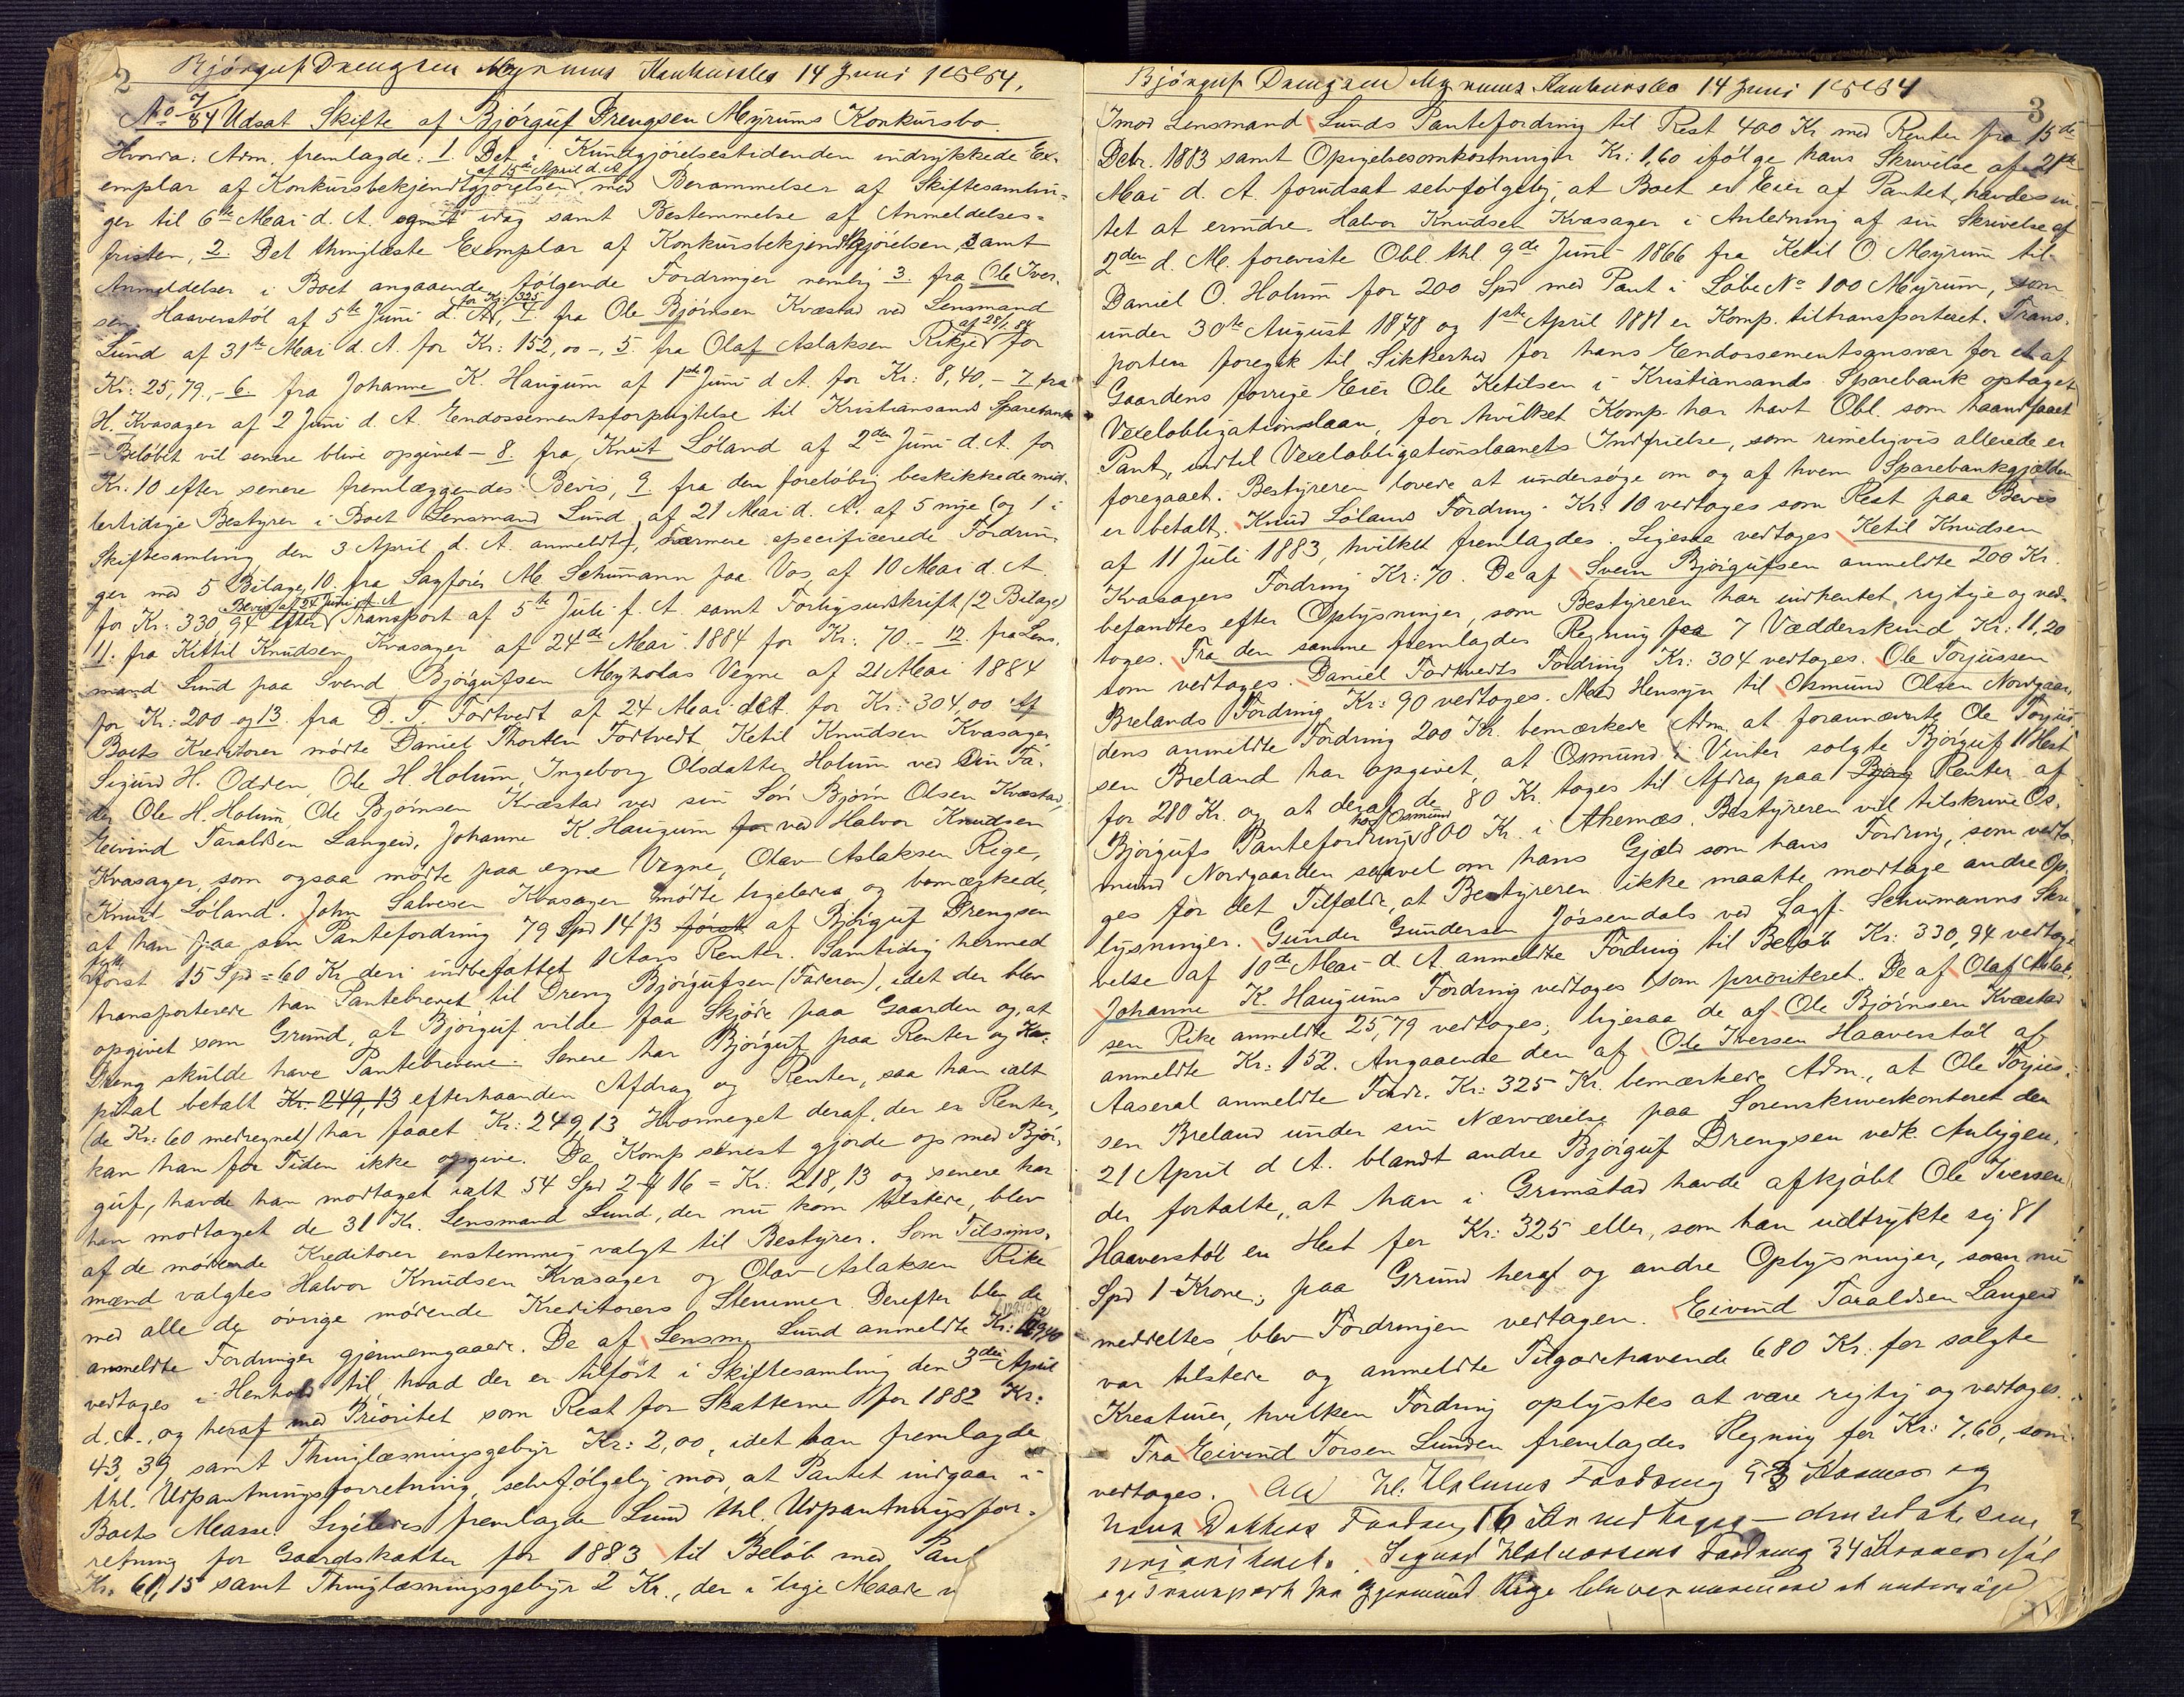 2
Bjørguf Drengsen Myrums Konkursbo 14 Juni 1884.
No 7/84 Udsat Skifte af Bjørguf Drengsen Myrums Konkursbo.
Hvorda: Adm. fremlagde: 1. Det i Kundgjørelsestidenden indrykkede Ex-
af 15de April d. A.
emplar af Konkursbekjendtgjørelsen med Berammelser af Skiftesamlin-
ger til 6te Mai d. A. og idag samt Bestemmelse af Anmeldelses-
fristen, 2. Det thinglæste Exemplar af Konkursbekjendtgjørelsen, samt
Anmeldelser i Boet angaaende følgende Fordringer nemlig 3. fra Ole Iver-
for Kr: 325
sen Haaverstøl af 5te Juni d. A., 4. fra Ole Bjørnsen Kvæstad ved Lensmand
af 28/5 84
Lund af 31te Mai d. A. for Kr: 152,00 -, 5. fra Olaf Aslaksen Rikje for
Kr: 25,79, - 6. fra Johanne K. Haugum af 1ste Juni d A. for Kr: 8,40, - 7 fra
H. Kvasager af 2 Juni d. A. Endossementsforpligtelse til Kristiansands Sparebank
- Beløbet vil senere blive opgivet - 8. fra Knut Løland af 2den Juni d. A. for
Kr: 10 efter senere fremlæggendes Bevis, 9. fra den foreløbig beskikkede mid-
lertidige Bestyrer i Boet Lensmand Lund af 21 Mai d. A. af 5 nye (og 1 i
Skiftesamling den 3 April d. A. anmeldt), nærmere specificerede Fordrin-
ger med 5 Bilage, 10. fra Sagfører M. Schumann paa Vos, af 10 Mai d. A.
Bevis af 24 Juni f. A.
for Kr: 330,94 efter Transport af 5te Juli f. A. samt Forligsudskrift (2 Bilage)
11. fra Kittil Knudsen Kvasager af 24de Mai 1884 for Kr: 70. - 12. fra Lens-
mand Lund paa Svend Bjørgufsen Myholas Vegne af 21 Mai 1884
for Kr: 200 og 13. fra D. T. Førtvedt af 24 Mai d. A. for Kr: 304,00. Af
Boets Kreditorer mødte Daniel Thorsen Førtvedt, Ketil Knudsen Kvasager,
Sigurd H. Odden, Ole H. Holum, Ingeborg Olsdatter Holum ved Sin Fa-
der Ole H. Holum, Ole Bjørnsen Kvæstad ved sin Søn Bjørn Olsen Kvæstad,
Eivind Taraldsen Langeid, Johanne K Haugum for ved Halvor Knudsen
Kvasager, som ogsaa mødte paa egne Vegne, Olav Aslaksen Rige,
Knud Løland. John Salvesen Kvasager mødte ligeledes og bemærkede,
at han paa sin Pantefordring 79 Spd 14 β først af Bjørguf Drengsen
først 15 Spd = 60 Kr deri indbefattet 1 Aars Renter. Samtidig hermed
transporterede han Pantebrevet til Dreng Bjørgufsen (Faderen), idet der blev
opgivet som Grund, at Bjørguf vilde faa Skjøde paa Gaarden og, at
Dreng skulde have Pantebrevene. Senere har Bjørguf paa Renter og Ka-
pital betalt Kr. 249,13 efterhaanden Afdrag og Renter, saa han ialt
(de Kr: 60 medregnet) har faaet Kr: 249,13 Hvormeget deraf, der er Renter,
kan han for Tiden ikke opgive. Da Komp senest gjorde op med Bjør-
guf, havde han modtaget ialt 54 Spd 2 # 16 = Kr: 218,13 og senere har
han modtaget de 31 Kr. Lensmand Lund, der nu kom tilstede, blev
af de mødende Kreditorer enstemmig valgt til Bestyrer. Som Tilsyns-
mænd valgtes Halvor Knudsen Kvasager og Olav Aslaksen Rike
med alle de øvrige mødende Kreditorers Stemmer. Derefter blev de
anmeldte Fordringer gjennemgaaede. De af Lensm. Lund anmeldte Kr:
vedtages i Henhold til, hvad der er tilført i Skiftesamling den 3die April
d. A., og heraf med Prioritet som Rest for Skatterne for 1882 Kr:
43,39 samt Thinglæsningsgebyr Kr: 2,00, idet han fremlagde
thl. Udpantningsforretning, selvfølgelig mod, at Pantet indgaar i
Boets Masse. Ligeledes fremlagde Lund thl. Udpantningsfor-
retning for Gaardskatter for 1883 til Beløb med Pant
Kr. 61,15 samt Thinglæsningsgebyr 2 Kr., der i lige Maade
Bjørguf Drengsen Myrums Konkursbo 14 Juni 1884
3
Imod Lensmand Lunds Pantefordring til Rest 400 Kr med Renter fra 15de
Debr. 1883 samt Opsigelsesomkostninger Kr: 1,60 ifølge hans Skrivelse af 21de
Mai d. A. forudsat selvfølgelig, at Boet er Eier af Pantet, havdes in-
tet at erindre. Halvor Knudsen Kvasager i Anledning af sin Skrivelse af
2den d. M. foreviste Obl. thl. 9de Juni 1866 fra Ketil O. Myrum til
Daniel O. Holum for 200 Spd med Pant i Løbe No 100 Myrum, som
under 30te August 1878 og 1ste April 1881 er Komp. tiltransporteret. Trans-
porten foregik til Sikkerhed for hans Endossementsansvar for et af
Gaardens forrige Eier Ole Ketilsen i Kristiansands Sparebank optaget
Vexelobligationslaan, for hvilket Komp. har havt Obl. som haandfaaet
Pant, indtil Vexelobligationslaanets Indfrielse, som rimeligvis allerede er
foregaaet. Bestyreren lovede at undersøge om og af hvem Sparebankgjælden
er betalt. Knud Lølands Fordring. Kr: 10 vedtoges som Rest paa Bevis
af 11 Juli 1883, hvilket fremlagdes. Ligesaa vedtoges Ketil Knudsen
Kvasagers Fordring Kr: 70. De af Svein Bjørgufsen anmeldte 200 Kr.
befandtes efter Oplysninger, som Bestyreren har indhentet, rigtige og ved-
toges. Fra den samme fremlagdes Regning paa 7 Vædderskind Kr: 11,20
som vedtoges. Daniel Førtvedts Fordring Kr: 304 vedtoges. Ole Torjussen
Brelands Fordring Kr: 90 vedtoges. Med Hensyn til Osmund Olsen Nordgaar-
dens anmeldte Fordring 200 Kr. bemærkede Adm. at forannævnte Ole Torjus-
sen Breland har opgivet, at Osmund i Vinter solgte Bjørguf 1 Hest
for 280 Kr. og at deraf de 80 Kr. toges til Afdrag paa Bjørg Renter af
hos Osmund
Bjørgufs Pantefordring 800 Kr. i Aknæs. Bestyreren vil tilskrive Os-
mund Nordgaarden saavel om hans Gjæld som hans Fordring, som vedta-
ges for det Tilfælde, at Bestyreren ikke maatte modtage andre Op-
lysninger. Gunder Gundersen Jøssendals ved Sagf. Schumanns Skri-
velse af 10de Mai d. A. anmeldte Fordring til Beløb Kr: 330,94 vedtoges
Johanne K. Haugums Fordring vedtoges som prioriteret. De af Olaf Aslak-
sen Rike anmeldte 25,79 vedtoges, ligesaa de af Ole Bjørnsen Kvæstad
anmeldte Kr: 152. Angaaende den af Ole Iversen Haaverstøl af
Aaseral anmeldte Fordr. Kr: 325 Kr. bemærkede Adm., at Ole Torjus-
sen Breland under sin Nærværelse paa Sorenskriverkontoret den
21 April d A. blandt andre Bjørguf Drengsen vedk. Anliggen-
der fortalte, at han i Grimstad havde afkjøbt Ole Iversen
Haaverstøl en Hest for Kr: 325 eller, som han udtrykte sig 81
Spd 1 Krone; paa Grund heraf og andre Oplysninger, som nu
meddeltes, blev Fordringen vedtagen. Eivind Taraldsen Langeid
var tilstede og anmeldte Tilgodehavende 680 Kr: for solgte
Kreaturer, hvilken Fordring oplystes at være rigtig og vedtoges.
Fra Eivind Torsen Lunden fremlagdes Regning for Kr: 7,60, som
vedtoges. Ole H. Holums Fordring 73 Kroner og
hans Datters Fordring 16 Kr vedtoges - den sidste som
prioriteret. Sigurd Halvorsens Fordring 34 Kroner iføl
ge Transport fra Gjermund Rige